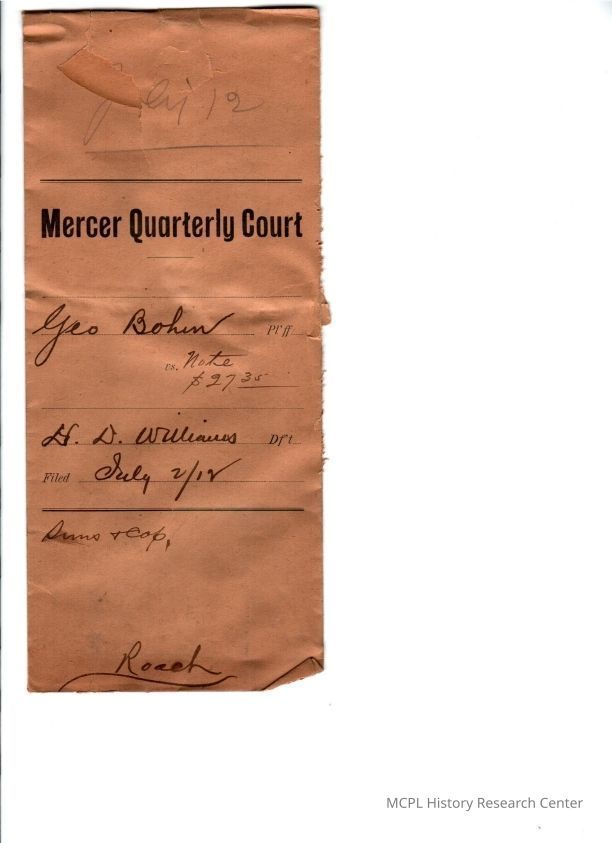 July 12
Mercer Quarterly Court
Geo Bohon Pl'ff
vs. Note
$27 35
H. D. Williams Df't
Filed July 2/12
Sums & Cop,
Roach
MCPL History Research Center